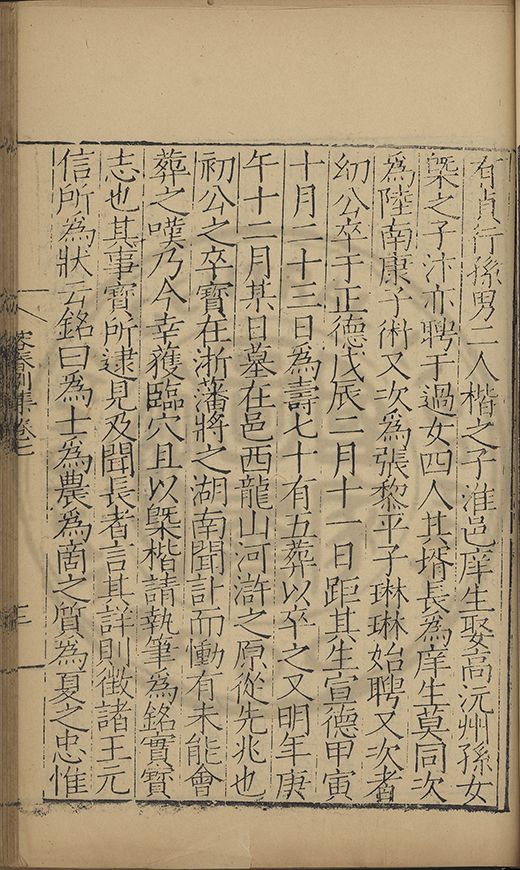 有貞行孫男二人楷之子淮邑庠生娶高沅州孫女
槩之子汴亦聘于過女四人其壻長為庠生莫同次
為陸南康子術又次為張黎平子琳琳始聘又次者
幼公卒于正德戊辰二月十一日距其生宣德甲寅
十月二十三日為壽七十有五葬以卒之又明年庚
午十二月某日墓在邑西龍山河滸之原從先兆也
初公之卒寳在浙藩將之湖南聞訃而慟有未能會
葬之嘆乃今幸獲臨穴且以槩楷請執筆為銘實寳
志也其事寳所逮見及聞長者言其詳則徵諸王元
信所為狀云銘曰為士為農為啇之質為夏之忠惟
容春別集卷